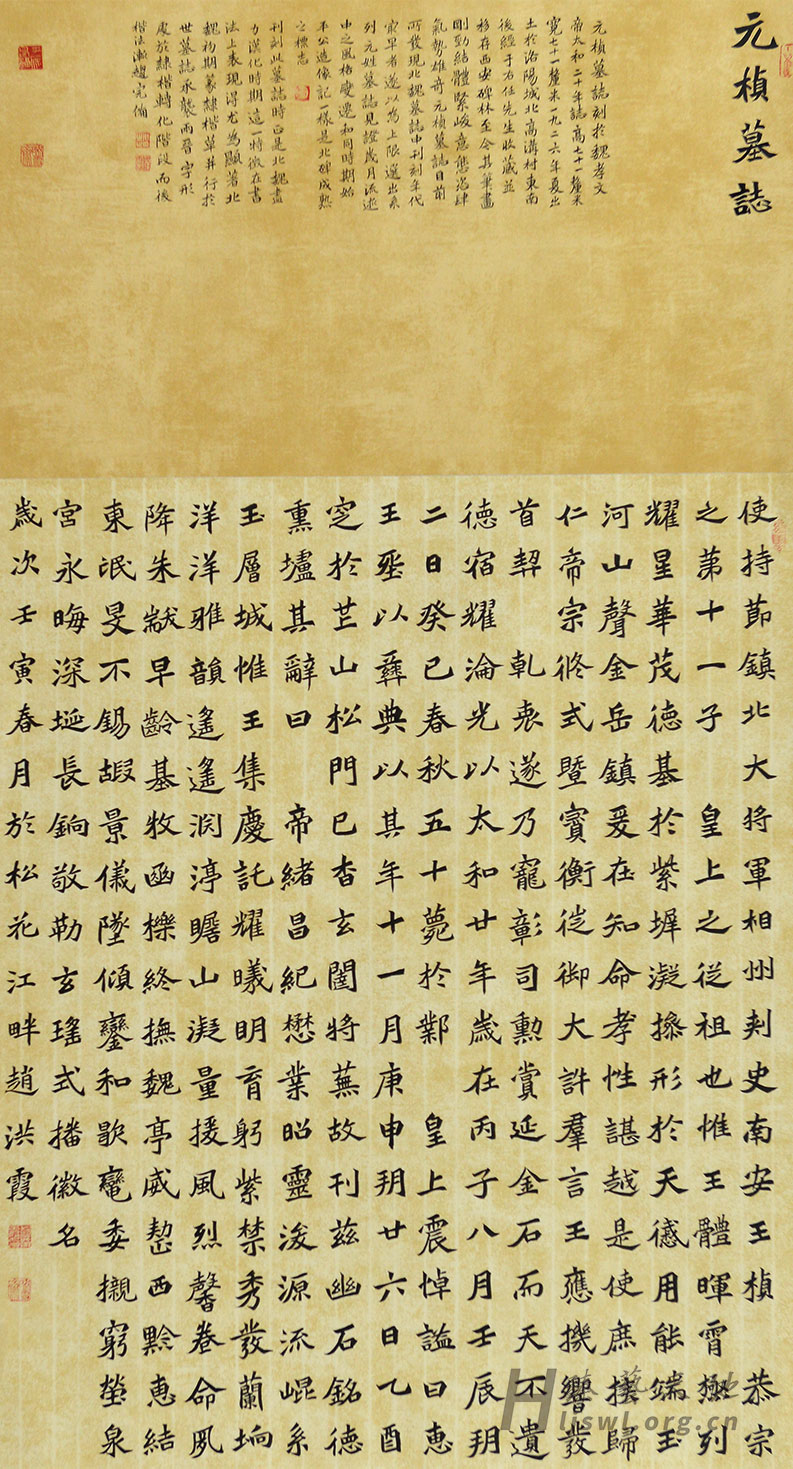 元楨墓誌
元楨墓誌刻於魏孝文
帝太和二十年誌高七十一釐米
寬七十一釐米一九二六年夏出
土於洛陽城北高溝村東南
後經于右任先生收藏並
移存西安碑林至今其筆畫
剛勁結體緊峻意態恣肆
氣勢雄奇元楨墓誌目前
所發現北魏墓誌中刊刻年代
最早者遂以為上限選出系
列元姓墓誌見證歲月流逝
中之風格變遷和同時期始
平公造像記一樣是北碑成熟
之標志
刊刻此墓誌時正是北魏盡
力漢化時期這一特徵在書
法上表現得尤為顯著北
魏初期篆隸楷草並行於
世墓誌承襲兩晉字形
處於隸楷轉化階段而後
楷法漸趨完備
使持節鎮北大將軍相州刺史南安王楨 恭宗
之第十一子 皇上之從祖也惟王體暉霄極列
耀星華茂德基於紫墀凝操形於天感用能端玉
河山聲金岳鎮爰在知命孝性諶越是使庶族歸
仁帝宗攸式暨寶衡從御大訏羣言王應機響發
首契 乹衷遂乃寵彰司勳賞延金石而天不遺
德宿耀淪光以太和廿年歲在丙子八月壬辰朔
二日癸巳春秋五十薨於鄴 皇上震悼謚曰惠
王葬以彝典以其年十一月庚申朔廿六日乙酉
窆於芒山松門已杳玄闥將蕪故刊茲幽石銘德
熏壚其辭曰 帝緒昌紀懋業昭靈浚源流崐系
玉層城惟王集慶託耀曦明育躬紫禁秀發蘭坰
洋洋雅韻遙遙淵渟瞻山凝量援風烈馨卷命夙
降朱黻早齡基牧函櫟終撫魏亭威整西黔惠結
東氓旻不錫嘏景儀墜傾鑾和歇鳴委櫬窮塋泉
宮永晦深埏長鋿敬勒玄瑤式播徽名
歲次壬寅春月於松花江畔趙洪霞
liswl.org.cn